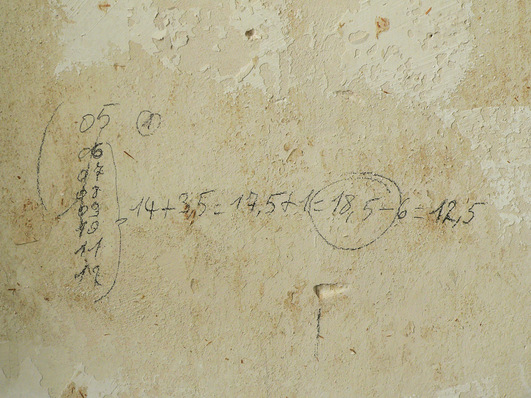 05 1
06
07
08
09
10
11
12
14+3,5=17,5+1=18,5-6=12,5